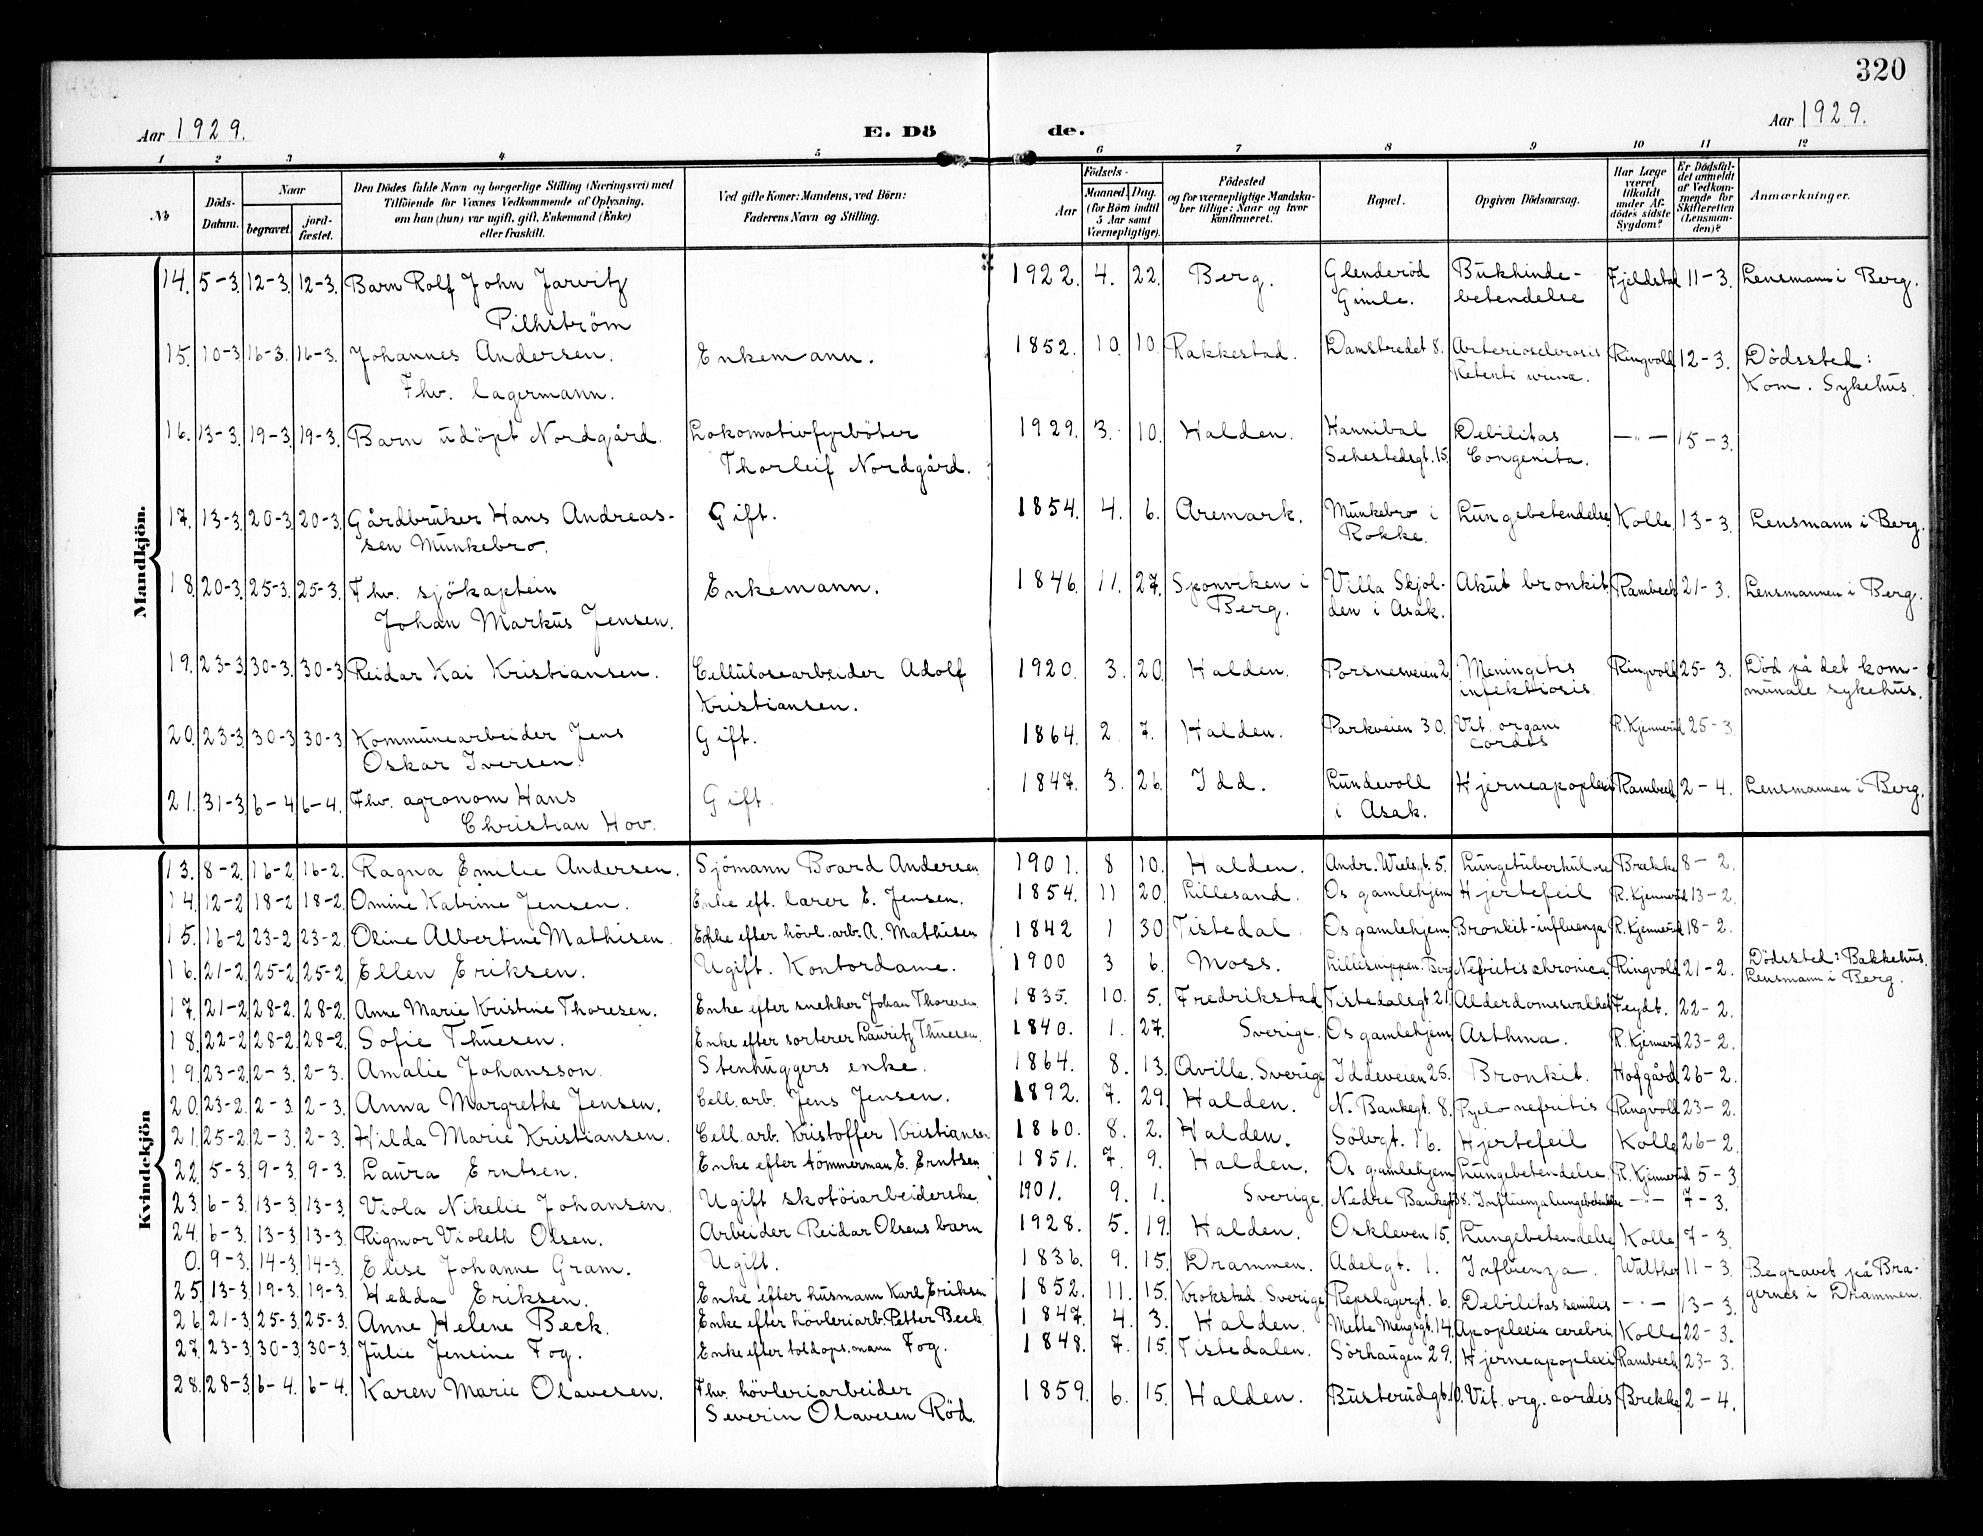 320
Aar 1929.
E. Dö de.
Aar 1929.
1 2 3 4 5 6 7 8 9 10 11 12
№
Döds-
Datum.
Naar
begravet.
jord-
fæstet.
Den Dödes fulde Navn og borgerlige Stilling (Næringsvei) med
Tilföiende for Voxnes Vedkommende af Oplysning,
om han (hun) var ugift, gift, Enkemand (Enke)
eller fraskilt.
Ved gifte Koner: Mandens, ved Börn:
Faderens Navn og Stilling.
Födsels-
Aar
Maaned.
Dag.
(for Börn indtil
5 Aar samt
Værnepligtige).
Födested
og for værnepligtige Mandska-
ber tillige: Naar og hvor
konfirmeret.
Bopæl.
Opgiven Dödsaarsag.
Har Læge
været
tilkaldt
under Af-
dödes sidste
Sygdom?
Er Dödsfal-
det anmeldt
af Vedkom-
mende for
Skifteretten
(Lensman-
den)?
Anmærkninger.
Mandkjön.
14. 5-3. 12-3. 12-3. Barn Rolf John Jarvitz 1922. 4. 22. Berg. Glenderöd Bukhinde- Fjeldstad 11-3. Lensmann i Berg.
Pilhström Gimle. betendelse
15. 10-3 16-3. 16-3. Johannes Andersen. Enkemann. 1852. 10. 10. Rakkestad. Damstredet 8. Arteriosclerosis Ringvold 12-3. Dödssted:
Fhv. lagermann. Retenti urinæ. Kom. Sykehus.
16. 13-3. 19-3. 19-3. Barn udöpt Nordgård. Lokomotivfyrböter 1929. 3. 10. Halden. Hannibal Debilitas —"— 15-3.
Thorleif Nordgård. Sehestedsgt. 15. Congenita.
17. 13-3. 20-3. 20-3. Gårdbruker Hans Andreas- Gift. 1854. 4. 6. Aremark. Munkebro i Lungebetendelse Kolle 13-3. Lensmann i Berg.
sen Munkebro. Rokke.
18. 20-3. 25-3. 25-3. Fhv. sjökaptein Enkemann. 1846. 11. 27. Sponviken i Villa Skjol- Akut bronkit. Rambech 21-3. Lensmannen i Berg.
Johan Markus Jensen. Berg. den i Asak.
19. 23-3. 30-3. 30-3. Reidar Kai Kristiansen. Cellulosearbeider Adolf 1920. 3. 20. Halden. Porsnesveien 2. Meningitis Ringvold 25-3. Död på det kom-
Kristiansen. infektiosis. munale sykehus.
20. 23-3. 30-3. 30-3. Kommunearbeider Jens Gift. 1864. 2. 7. Halden. Parkveien 30. Vit. organi R. Kjennerud 25-3.
Oskar Iversen. cordis
21. 31-3. 6-4. 6-4. Fhv. agronom Hans Gift. 1847. 3. 26. Idd. Lundevoll Hjerneapoplexi Rambech 2-4. Lensmannen i Berg.
Christian Hov. i Asak.
Kvindekjön
13. 8-2. 16-2. 16-2. Ragna Emilie Andersen. Sjömann Board Andersen 1901. 8 10. Halden. Andr. Wielsgt. 5. Lungetuberkulose Brekke 8-2.
14. 12-2 18-2 18-2. Omine Katrine Jensen. Enke eft. lærer E. Jensen. 1854. 11 20. Lillesand. Os gamlehjem Hjertefeil R. Kjennerud 13-2.
15. 16-2 23-2 23-2. Oline Albertine Mathisen. Enke efter hövl.arb. A. Mathisen 1842 1 30 Tistedal. Os gamlehjem. Bronkit-influenza R. Kjennerud 18-2.
16. 21-2 25-2 25-2 Ellen Eriksen. Ugift. Kontordame. 1900 3 6. Moss. Berg Nefritis chronica Ringvold 21-2. Dödssted: Bakkehus.
Lensmann i Berg.
17. 21-2 28-2. 28-2. Anne Marie Kristine Thoresen. Enke efter snekker Johan Thoresen. 1835. 10. 5. Fredrikstad Tistedalsgt. 21 Alderdomssvakhet Feydt. 22-2.
18. 22-2 28-2. 28-2. Sofie Thuesen. Enke efter sorterer Lauritz Thuesen. 1840. 1. 27. Sverige. Os gamlehjem Asthma. R. Kjennerud 23-2.
19. 23-2 2-3. 2-3. Amalie Johansson. Stenhuggers enke. 1864. 8. 13. Qville. Sverige Iddeveien 25. Bronkit. Hofgård 26-2.
20. 23-2. 2-3. 2-3. Anna Margrethe Jensen. Cell. arb. Jens Jensen. 1892. 7. 29. Halden. N. Bankegt. 8. Pyelo nefritis Ringvold 23-2.
21. 25-2. 2-3. 2-3. Hilda Marie Kristiansen. Cell. arb. Kristoffer Kristiansen 1860. 8. 2. Halden. Sölvgt. 16. Hjertefeil Kolle 26-2.
22. 5-3. 9-3. 9-3. Laura Erntsen. Enke efter tömmerman E. Erntsen 1851. 7. 9. Halden. Os gamlehjem Lungebetendelse. R. Kjennerud 5-3
23. 6-3. 13-3. 13-3. Viola Nikelie Johansen. Ugift skotöiarbeiderske. 1901. 9. 1. Sverige. Nedre Bankegt 38. Influenzalungebetendelse —"— 7-3.
24. 6-3. 13-3 13-3. Rigmor Violeth Olsen. Arbeider Reidar Olsens barn 1928. 5. 19. Halden. Oskleven 15. Lungebetendelse Kolle 7-3.
0. 9-3. 14-3. 14-3. Elise Johanne Gram. Ugift. 1836. 9. 15. Drammen. Adelgt. 1. Influenza. Walther 11-3. Begravet på Bra-
gernes i Drammen.
25. 13-3. 19-3. 19-3. Hedda Eriksen. Enke efter husmann Karl Eriksen 1852. 11. 15. Krokstad. Sverige Repslagergt. 6. Debilitas semiles —"— 13-3.
26. 21-3. 25-3. 25-3. Anne Helene Beck. Enke efter hövleriarb. Petter Beck 1847. 4. 3. Halden. Mette Mengsgt. 14. Apoplexia cerebri Kolle 22-3.
27. 23-3. 30-3. 30-3. Julie Jensine Fog. Enke efter toldops.mann Fog. 1848. 7. 15. Tistedalen. Sörhaugen 29. Hjerneapoplexi Rambech 23-3.
28. 28-3. 6-4. 6-4. Karen Marie Olavesen. Fhv. hövleriarbeider 1859. 6. 15. Halden. Busterudgt. 10. Vit. org. cordis Brekke 2-4.
Severin Olavesen Röd.